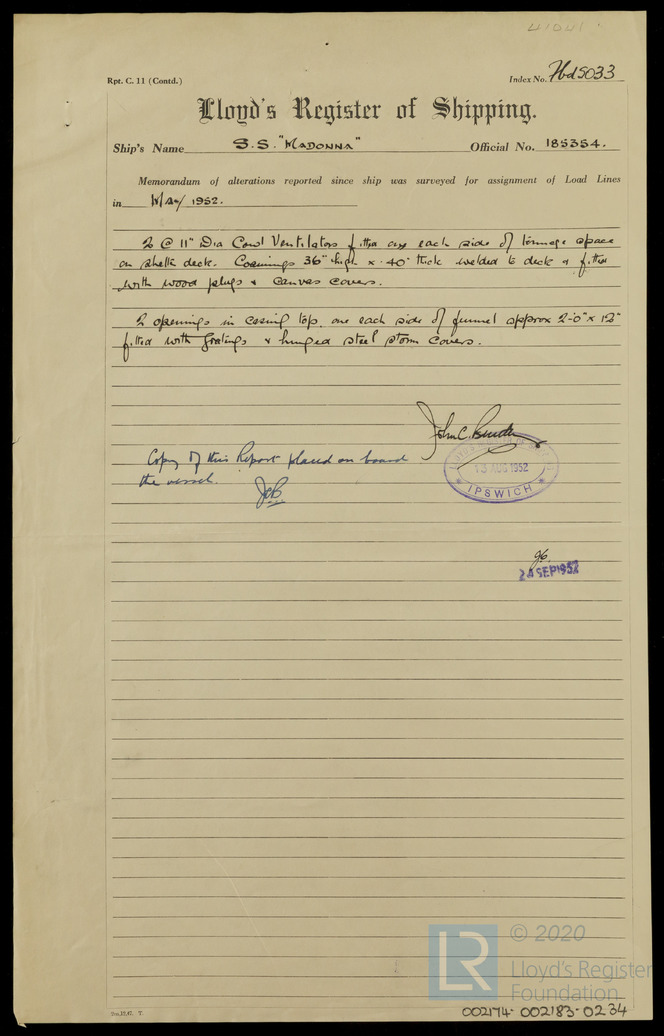 41041
Rpt. C. 11 (Contd.)
Index No. Hbd5033
Lloyd's Register of Shipping.
Ship's Name S.S. "MADONNA" Official No. 185354.
Memorandum of alterations reported since ship was surveyed for assignment of Load Lines
in May 1952.
2 @ 11" Dia Cowl Ventilators fitted one each side of tonnage space
on shelter deck. Coamings 36" high x .40" thick welded to deck & fitted
with wood plugs & canvas covers.
2 openings in casing top, one each side of funnel approx 2'-0" x 12"
fitted with gratings & hinged steel storm covers.
John C.
Copy of this Report placed on board
the vessel. JCB
LLOYD'S REGISTER OF SHIPPING
13 AUG 1952
* IPSWICH *
24 SEP 1952
LR © 2020
Lloyd's Register
Foundation
002174-002183-0234